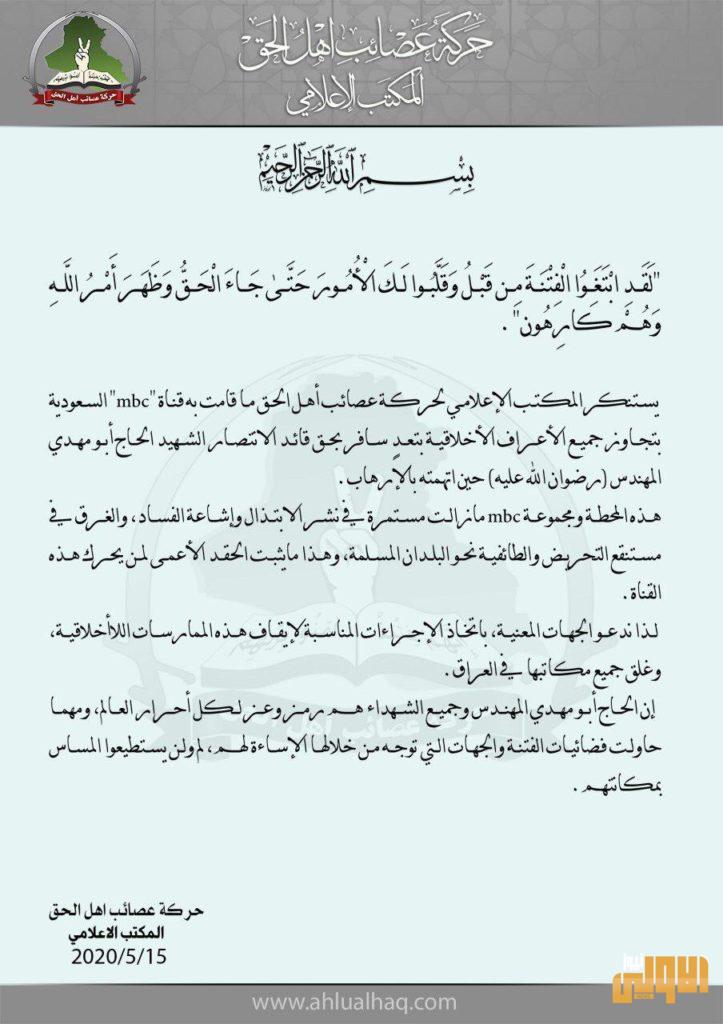 حركة عصائب اهل الحق
المكتب الإعلامي
حركة عصائب اهل الحق
بسم الله الرحمن الرحيم
"لَقَدِ ابْتَغَوُا الْفِتْنَةَ مِن قَبْلُ وَقَلَّبُوا لَكَ الْأُمُورَ حَتَّىٰ جَاءَ الْحَقُّ وَظَهَرَ أَمْرُ اللَّهِ
وَهُمْ كَارِهُون" .
يستنكر المكتب الإعلامي لحركة عصائب أهل الحق ما قامت به قناة "mbc" السعودية
بتجاوز جميع الأعراف الأخلاقية بتعدٍ سافر بحق قائد الانتصار الشهيد الحاج أبو مهدي
المهندس (رضوان الله عليه) حين اتهمته بالإرهاب .
هذه المحطة ومجموعة mbc مازالت مستمرة في نشر الابتذال وإشاعة الفساد، والغرق في
مستنقع التحريض والطائفية نحو البلدان المسلمة، وهذا مايثبت الحقد الأعمى لمن يحرك هذه
القناة .
لذا ندعو الجهات المعنية، باتخاذ الإجراءات المناسبة لإيقاف هذه الممارسات اللاأخلاقية،
وغلق جميع مكاتبها في العراق .
إن الحاج أبو مهدي المهندس وجميع الشهداء هم رمز وعز لكل أحرار العالم، ومهما
حاولت فضائيات الفتنة والجهات التي توجه من خلالها الإساءة لهم، لم ولن يستطيعوا المساس
بمكانتهم .
حركة عصائب اهل الحق
المكتب الاعلامي
2020/5/15
الاولى نيوز
www.ahlualhaq.com